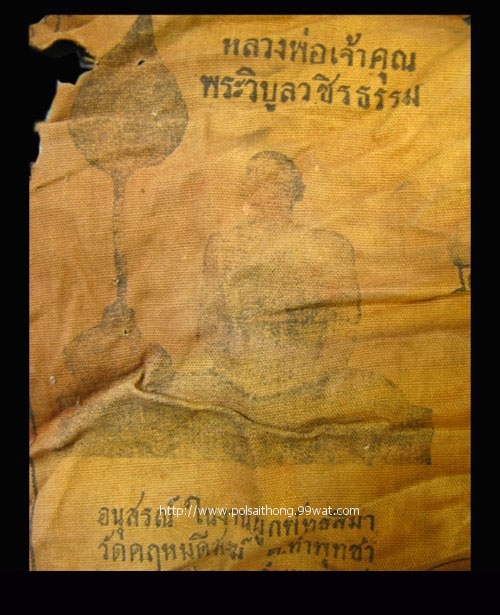 หลวงพ่อเจ้าคุณ
พระวิบูลวชิรธรรม
http://www.polsaithong.99wat.com
อนุสรณ์ ในงานผูกพัทธสีมา
วัดคฤหบดีสงฆ์